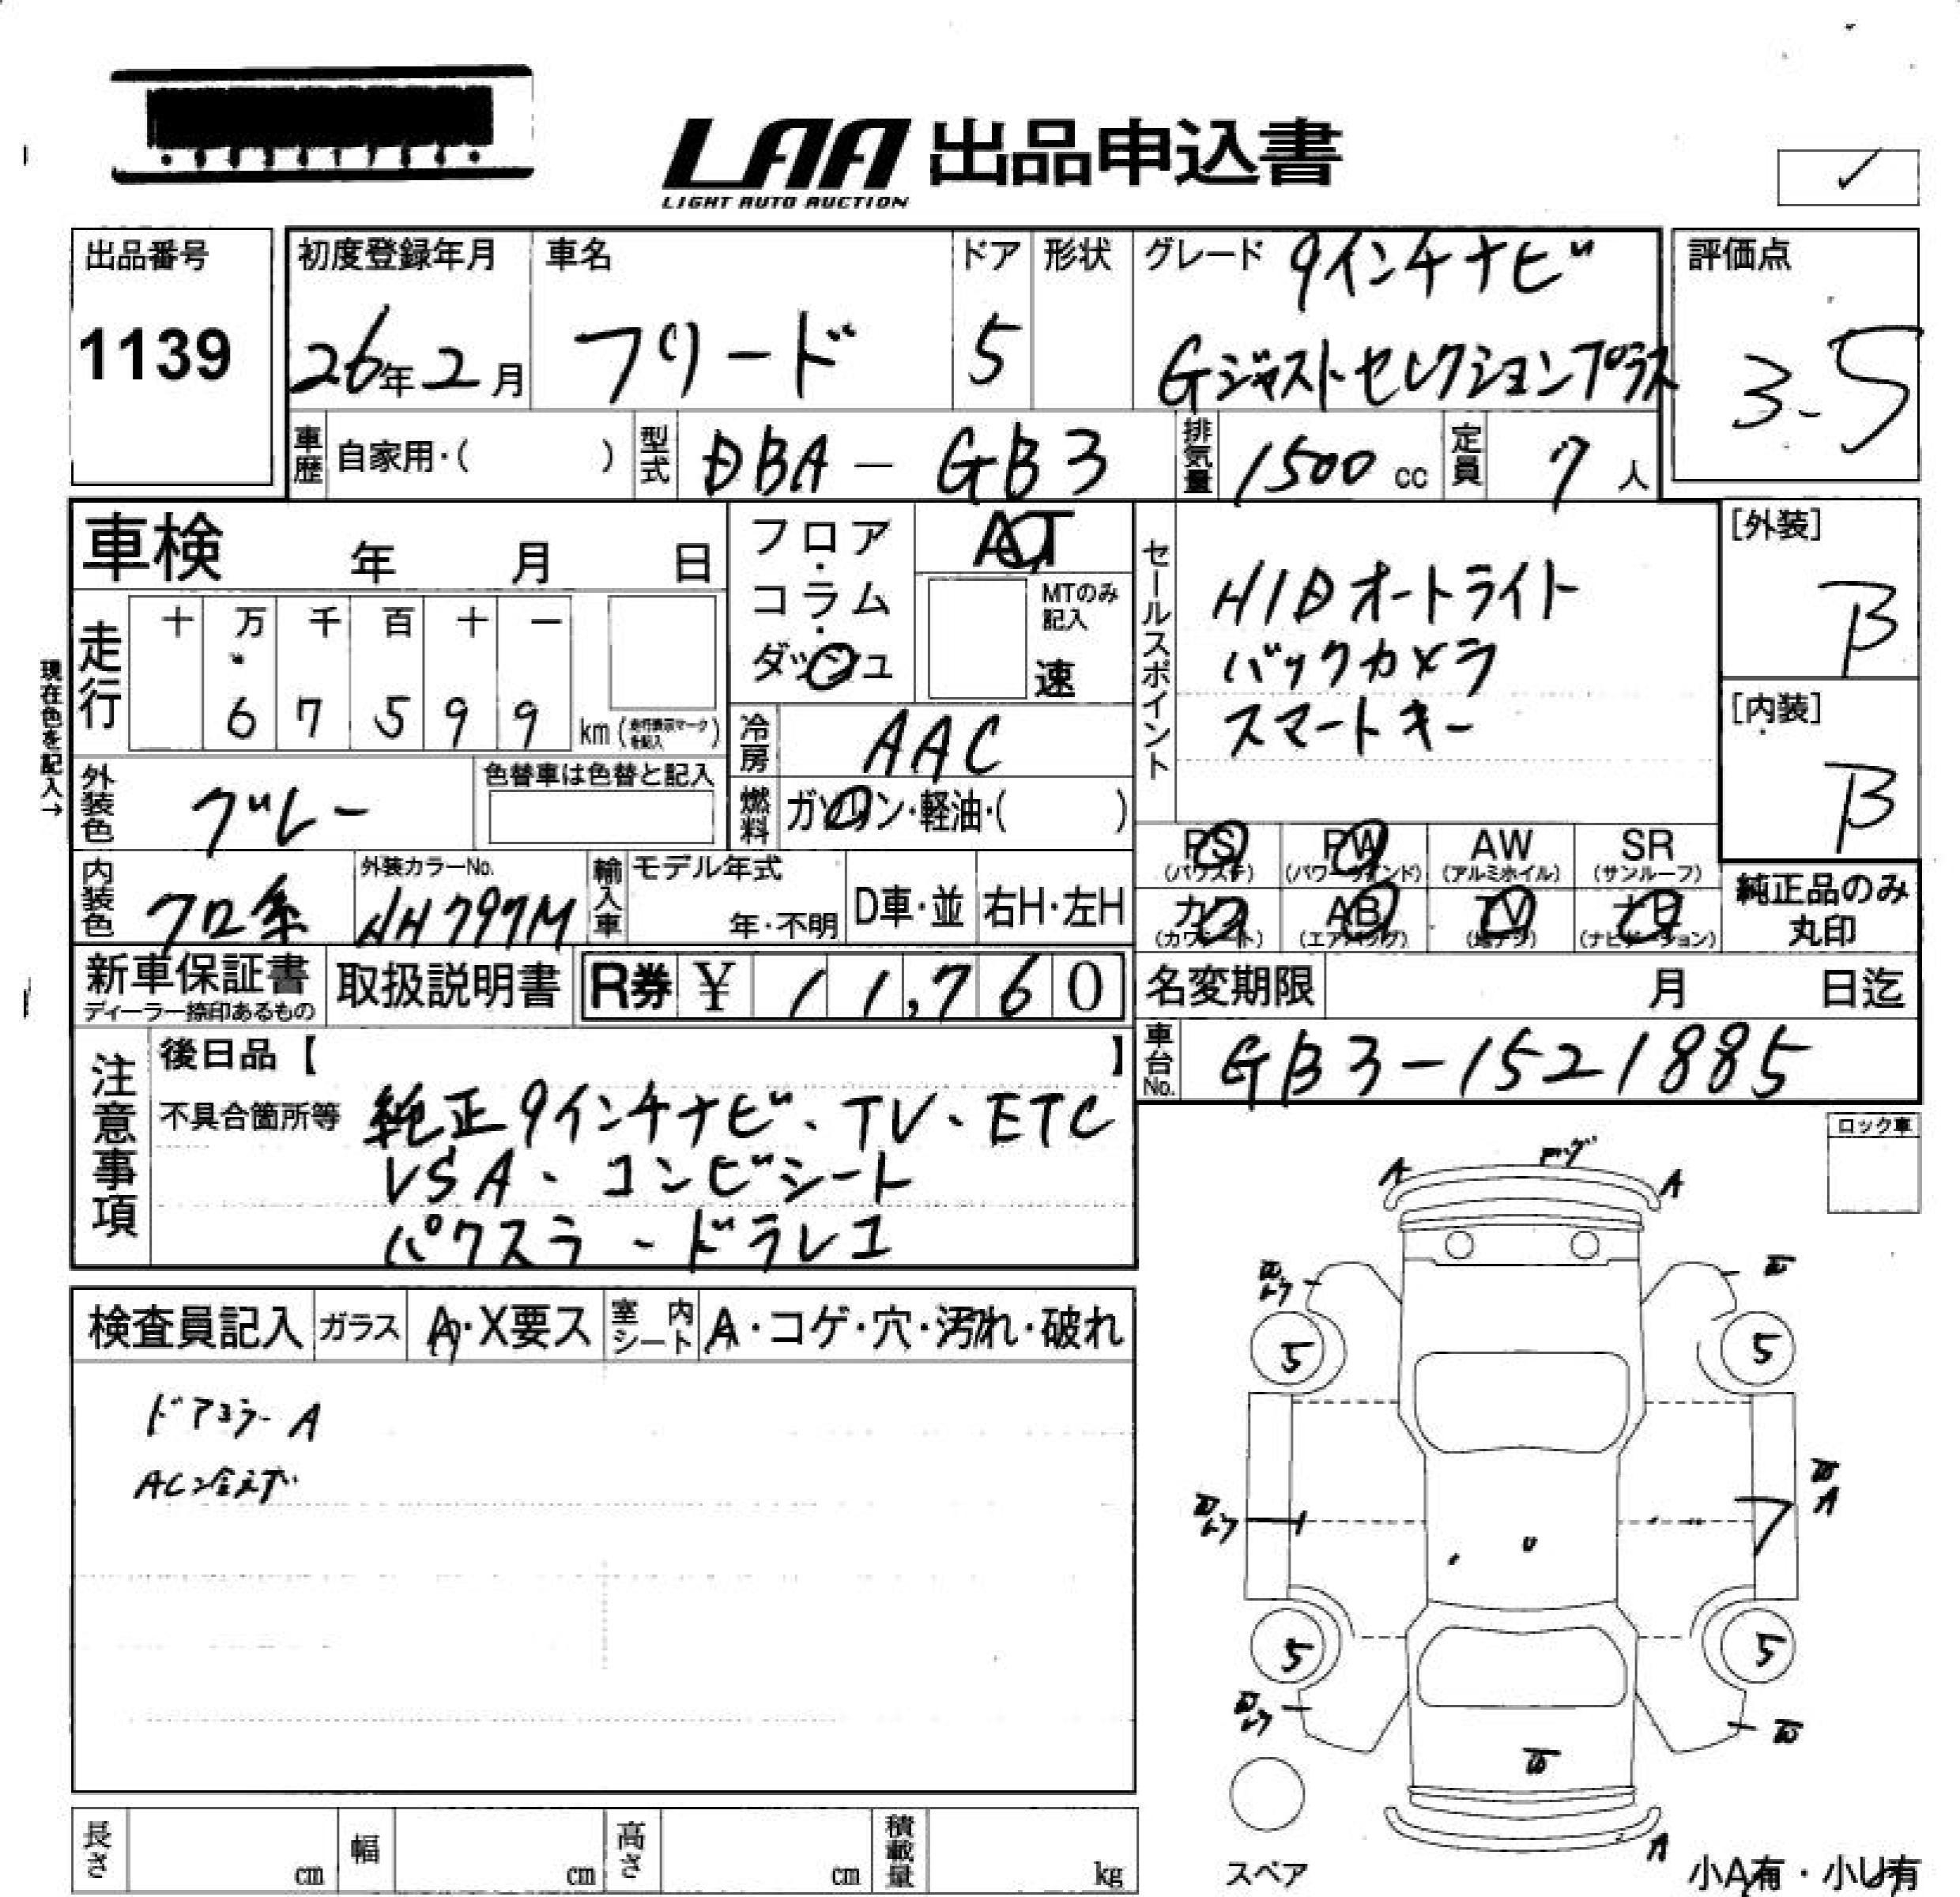 LAA 出品申込書
LIGHT AUTO AUCTION
出品番号
1139
初度登録年月
26年2月
車名
フリード
ドア
5
形状
グレード 9インチナビ
Gジャストセレクションプラス
評価点
3.5
車歴 自家用・( )
型式 DBA-GB3
排気量 1500 cc
定員 7人
車検 年 月 日
フロア・コラム・ダッシュ
AT
MTのみ記入
速
セールスポイント
HIDオートライト
バックカメラ
スマートキー
[外装]
B
[内装]
B
現在色を記入→
走行
十 万 千 百 十 一
6 7 5 9 9 km (走行表示マークを記入)
冷房 AAC
外装色 グレー
色替車は色替と記入
燃料 ガソリン・軽油・( )
PS PW AW SR
(パワステ) (パワーウインド) (アルミホイル) (サンルーフ)
カワ AB TV ナビ
(カワシート) (エアバッグ) (地デジ) (ナビゲーション)
純正品のみ
丸印
内装色 クロ系
外装カラーNo.
NH797M
輸入車 モデル年式
年・不明
D車・並 右H・左H
新車保証書
ディーラー捺印あるもの
取扱説明書
R券 ¥ 11,760
名変期限 月 日迄
車台No. GB3-1521885
注意事項
後日品【 】
不具合箇所等 純正9インチナビ、TV、ETC
VSA、コンビシート
パワスラ、ドラレコ
ロック車
検査員記入 ガラス A・X要ス 室内シート A・コゲ・穴・汚れ・破れ
ドアミラーA
AC冷えず
A A
5 5
A
5 5
A
スペア
小A有・小U有
長さ cm 幅 cm 高さ cm 積載量 kg